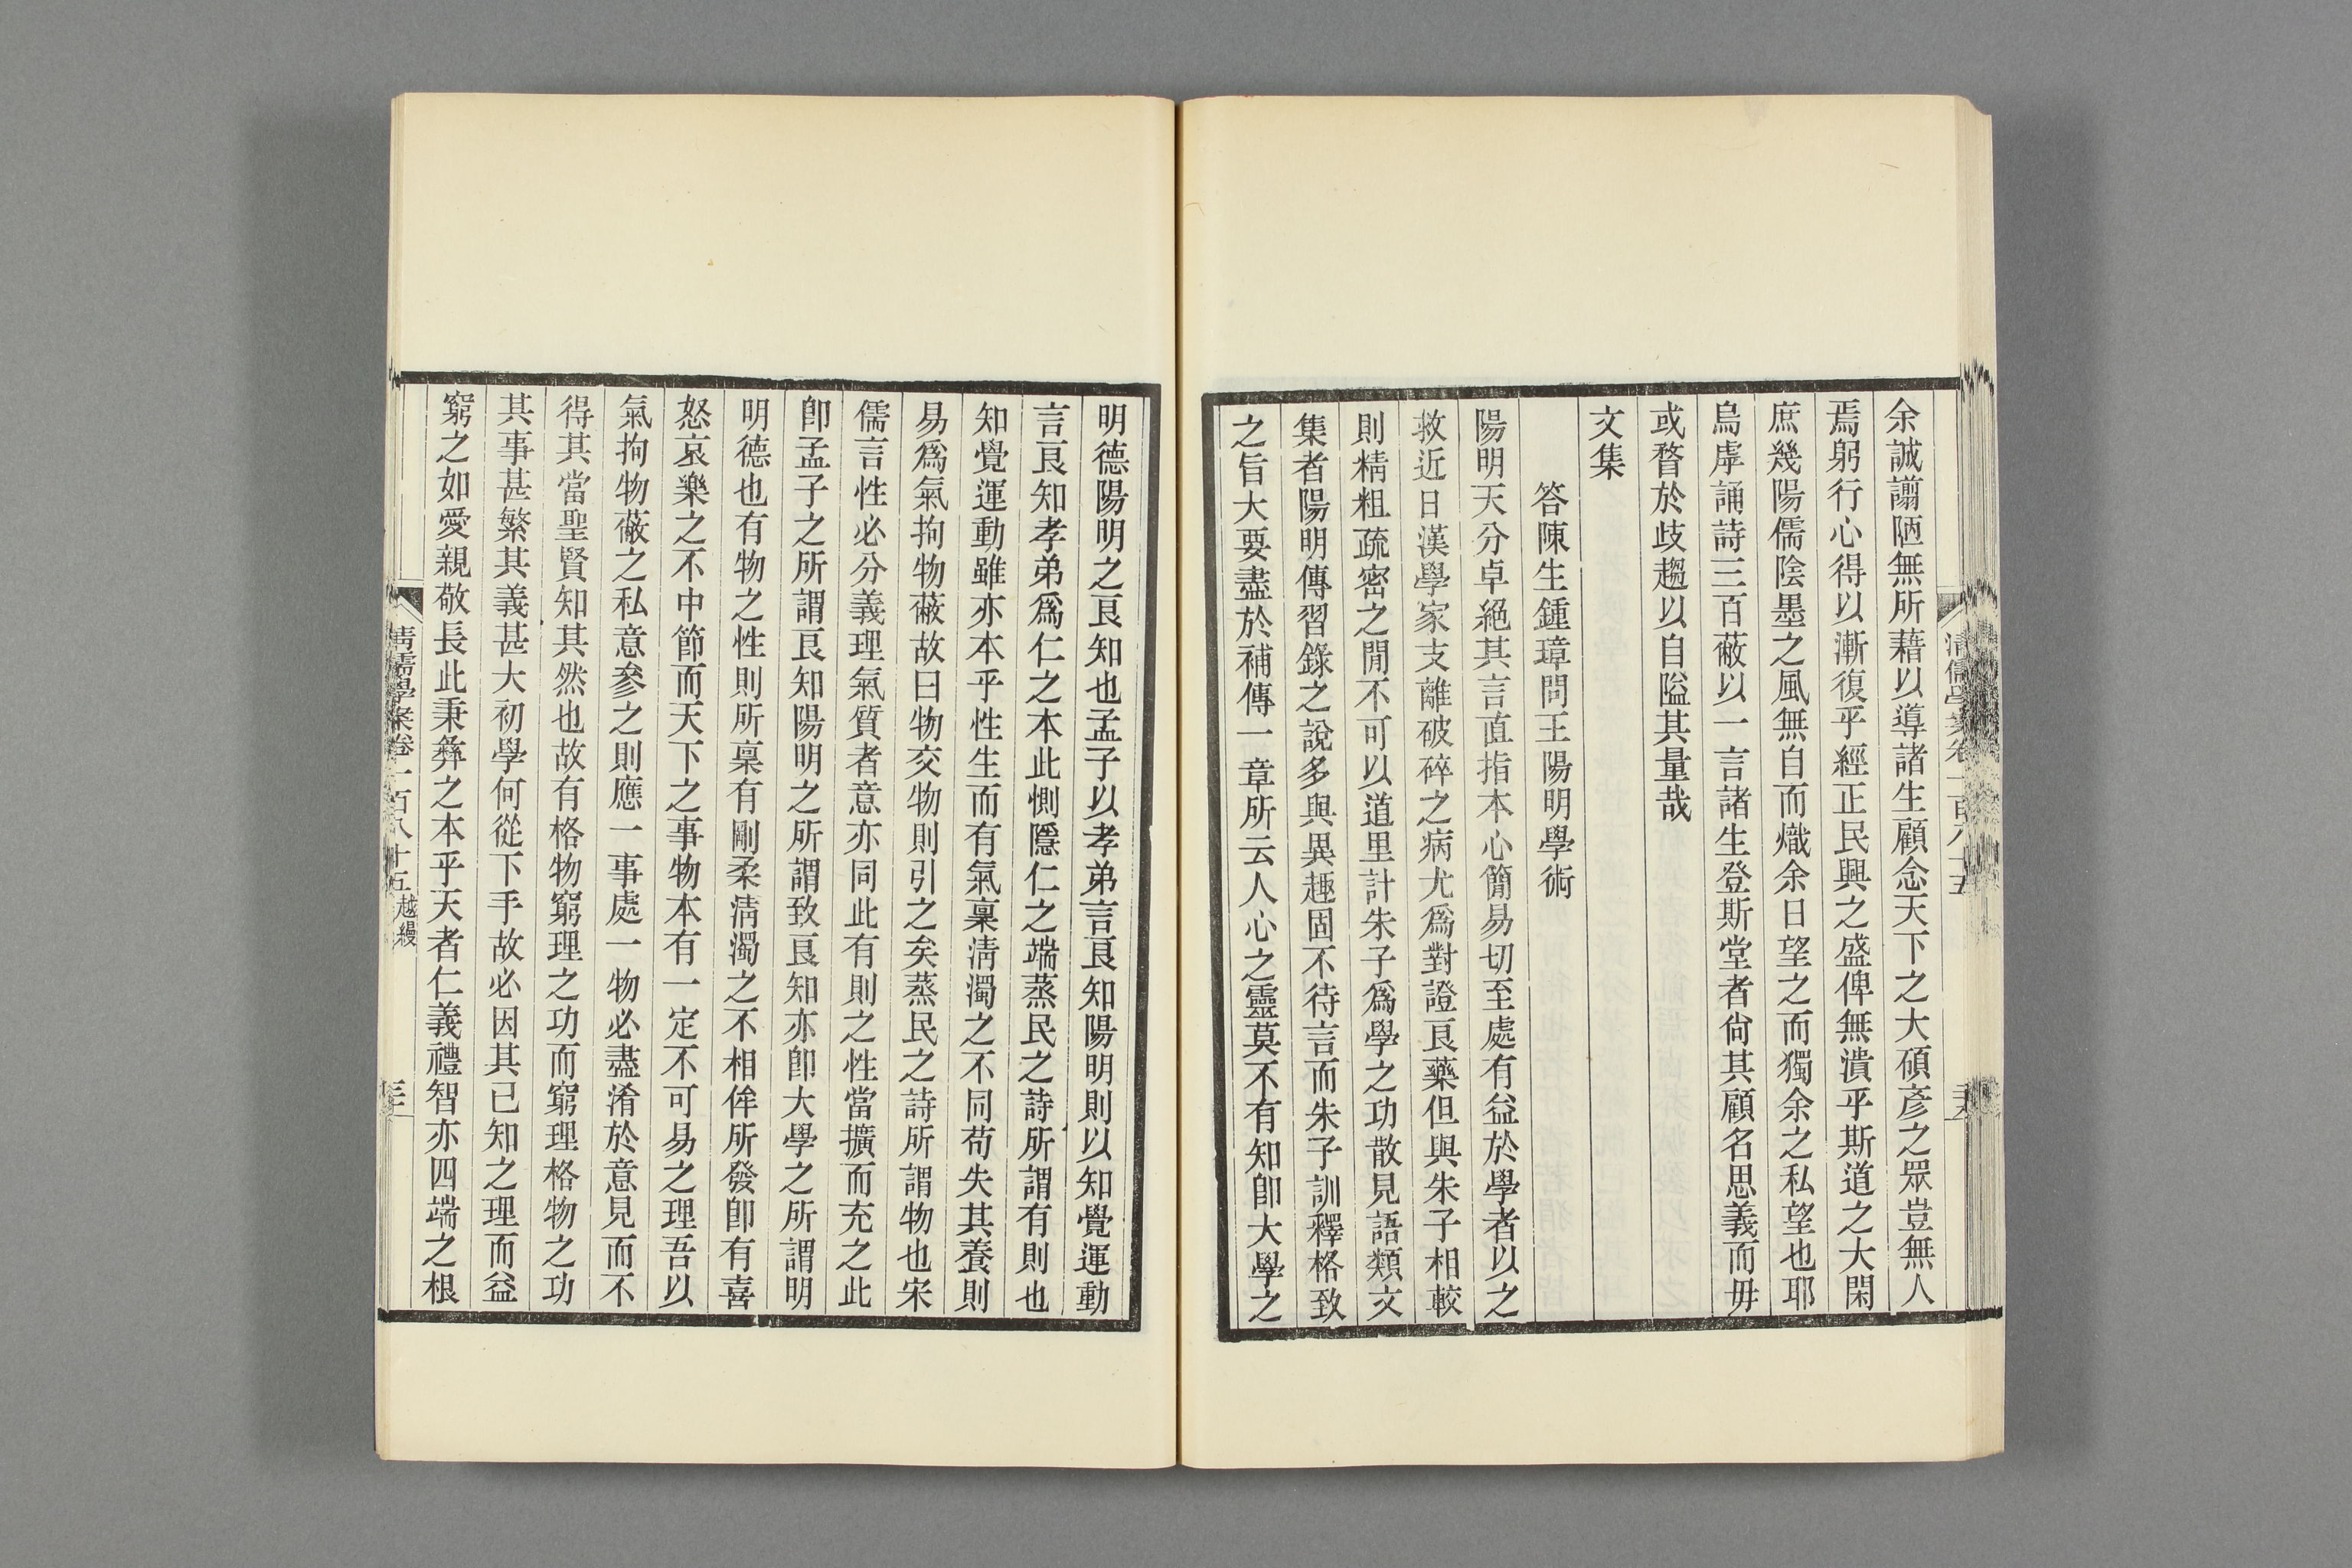 余誠譾陋無所藉以導諸生顧念天下之大碩彥之眾豈無人
焉躬行心得以漸復乎經正民興之盛俾無潰乎斯道之大閑
庶幾陽儒陰墨之風無自而熾余日望之而獨余之私望也耶
烏虖誦詩三百蔽以一言諸生登斯堂者尙其顧名思義而毋
或瞀於歧趨以自隘其量哉
文集
答陳生鍾璋問王陽明學術
陽明天分卓絕其言直指本心簡易切至處有益於學者以之
救近日漢學家支離破碎之病尤爲對證良藥但與朱子相較
則精粗疏密之閒不可以道里計朱子爲學之功散見語類文
集者陽明傳習錄之說多與異趣固不待言而朱子訓釋格致
之旨大要盡於補傳一章所云人心之靈莫不有知卽大學之
明德陽明之良知也孟子以孝弟言良知陽明則以知覺運動
言良知孝弟爲仁之本此惻隱仁之端蒸民之詩所謂有則也
知覺運動雖亦本乎性生而有氣稟淸濁之不同苟失其養則
易爲氣拘物蔽故曰物交物則引之矣蒸民之詩所謂物也宋
儒言性必分義理氣質者意亦同此有則之性當擴而充之此
卽孟子之所謂良知陽明之所謂致良知亦卽大學之所謂明
明德也有物之性則所稟有剛柔淸濁之不相侔所發卽有喜
怒哀樂之不中節而天下之事物本有一定不可易之理吾以
氣拘物蔽之私意參之則應一事處一物必盡淆於意見而不
得其當聖賢知其然也故有格物窮理之功而窮理格物之功
其事甚繁其義甚大初學何從下手故必因其已知之理而益
窮之如愛親敬長此秉彝之本乎天者仁義禮智亦四端之根
淸儒學案卷一百八十五 越縵